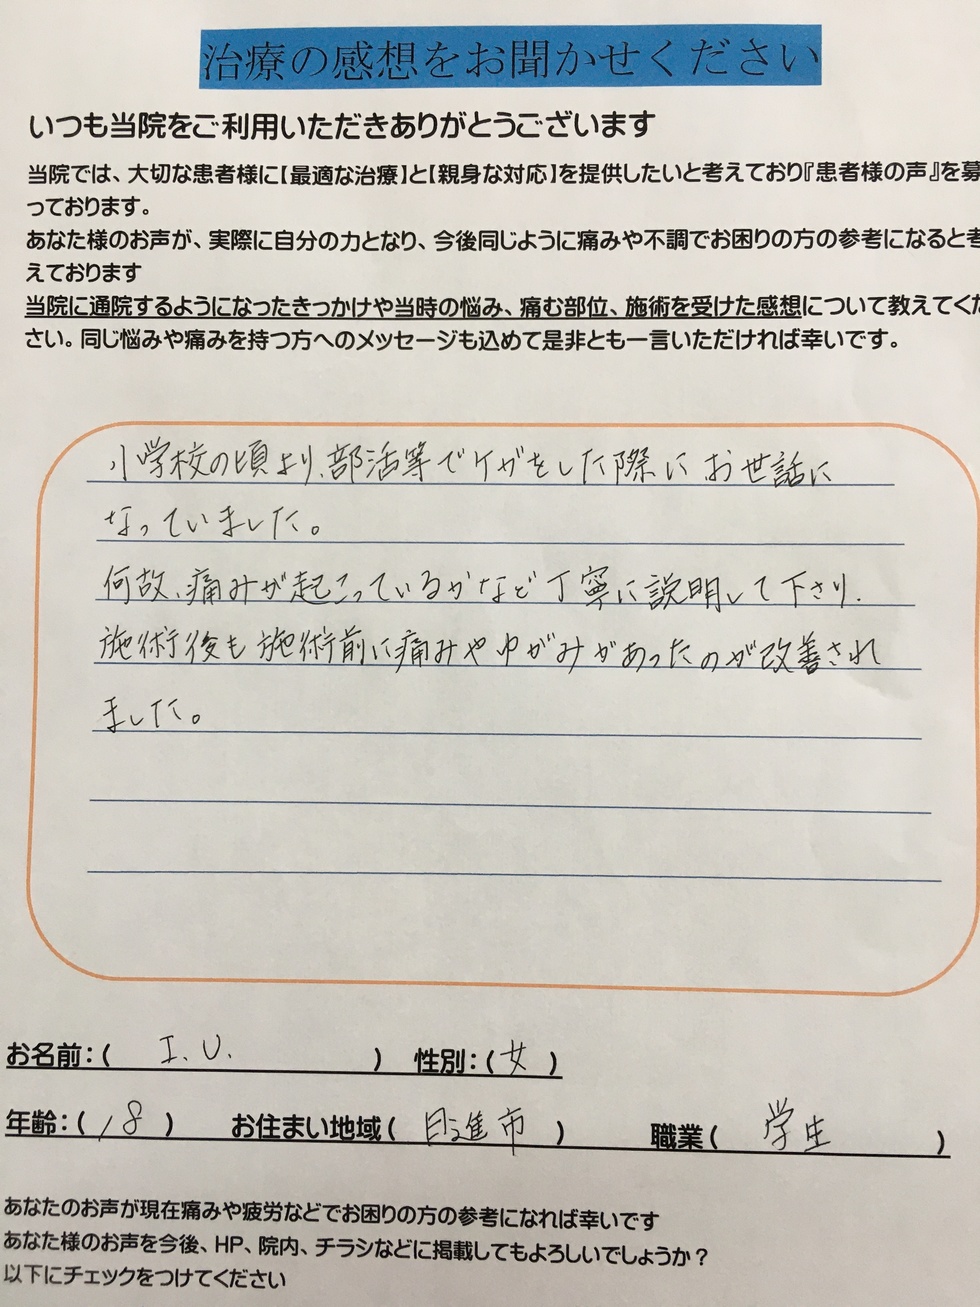 治療の感想をお聞かせください
いつも当院をご利用いただきありがとうございます
当院では、大切な患者様に【最適な治療】と【親身な対応】を提供したいと考えており『患者様の声』を募
っております。
あなた様のお声が、実際に自分の力となり、今後同じように痛みや不調でお困りの方の参考になると考
えております
当院に通院するようになったきっかけや当時の悩み、痛む部位、施術を受けた感想について教えてくだ
さい。同じ悩みや痛みを持つ方へのメッセージも込めて是非とも一言いただければ幸いです。
小学校の頃より、部活等でケガをした際にお世話に
なっていました。
何故、痛みが起こっているかなど丁寧に説明して下さり、
施術後も施術前に痛みやゆがみがあったのが改善され
ました。
お名前:( I.U. ) 性別:(女)
年齢:(18) お住まい地域(日進市) 職業(学生)
あなたのお声が現在痛みや疲労などでお困りの方の参考になれば幸いです
あなた様のお声を今後、HP、院内、チラシなどに掲載してもよろしいでしょうか？
以下にチェックをつけてください